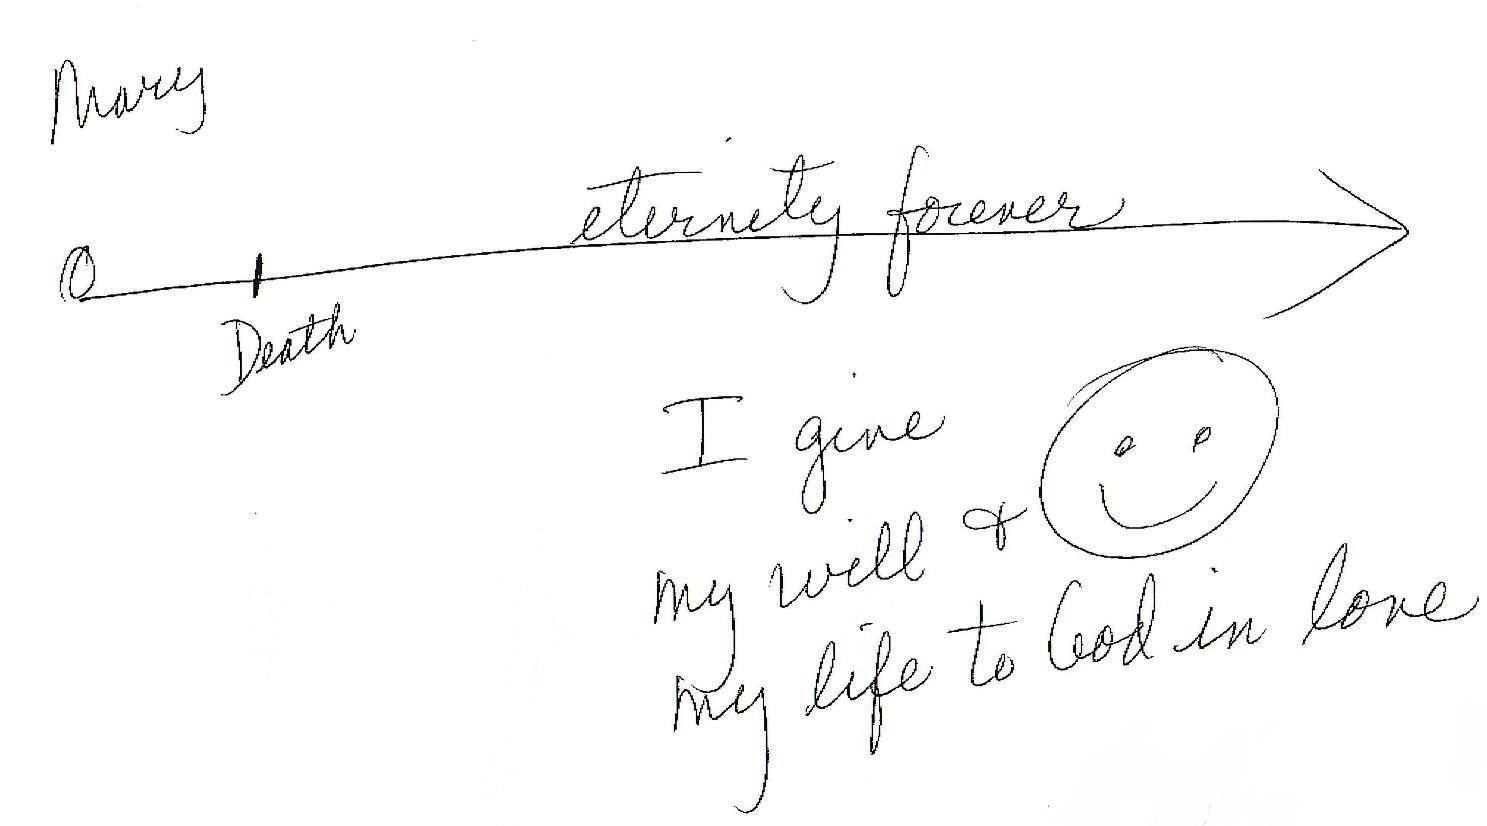 Mary
eternity forever
O
Death
I give
my will &
my life to God in love